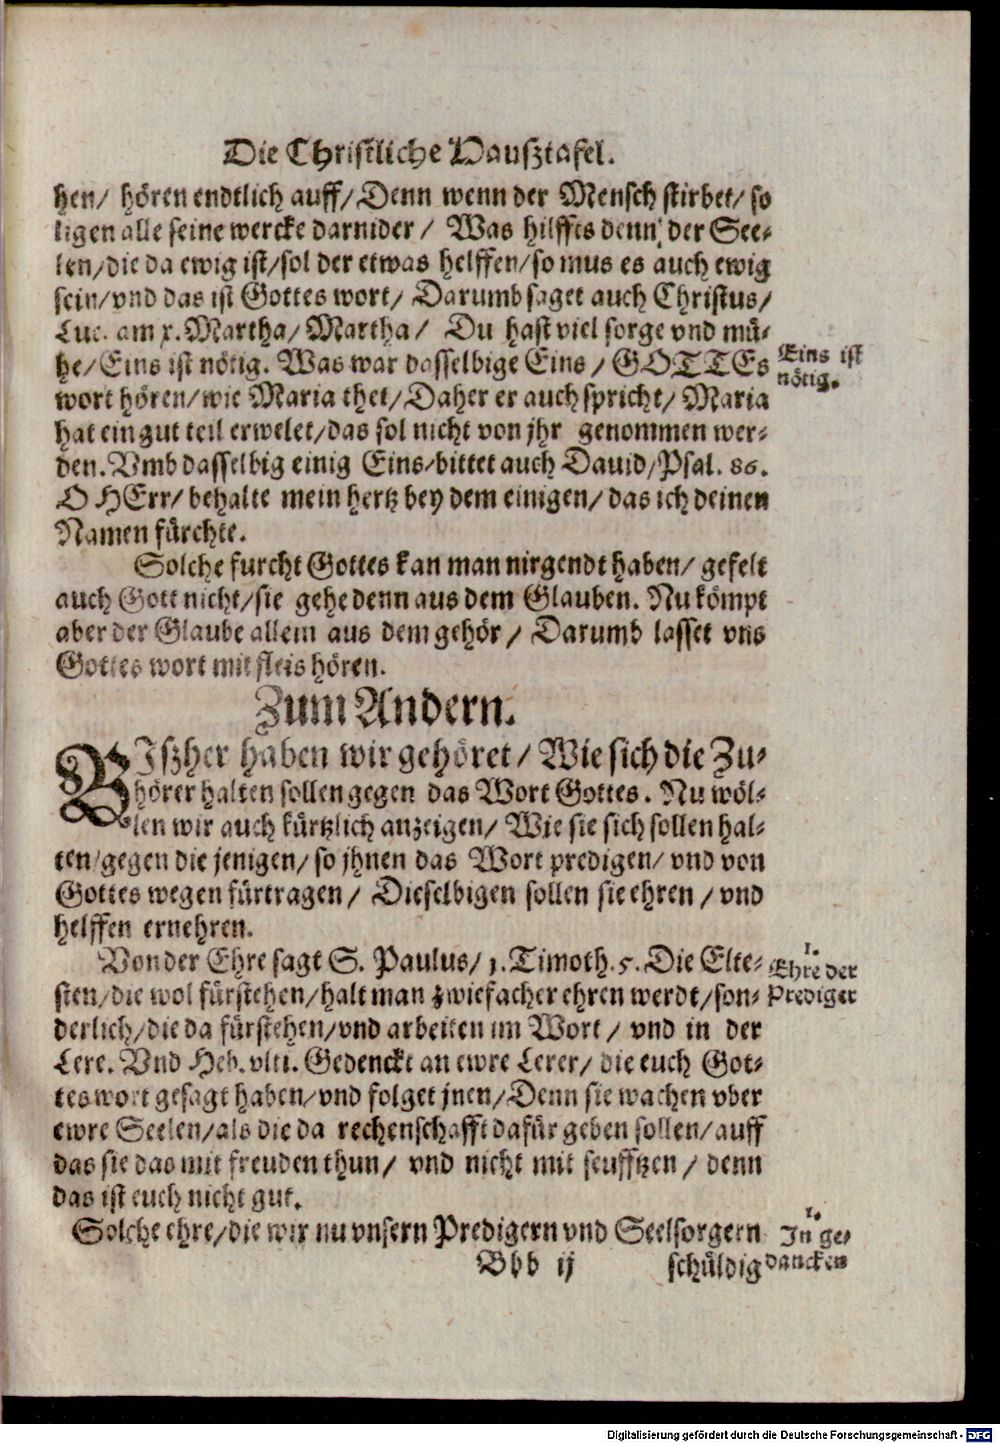 Die Christliche Haußtafel.
hen/ hören endtlich auff/ Denn wenn der Mensch stirbet/ so
ligen alle seine wercke darnider / Was hilffts denn? der See-
len/ die da ewig ist/ sol der etwas helffen/ so mus es auch ewig
sein/ vnd das ist Gottes wort/ Darumb saget auch Christus/
Luc. am x. Martha/ Martha/ Du hast viel sorge vnd mü-
he/ Eins ist nötig. Was war dasselbige Eins / GOTTEs
Eins ist
nötig.
wort hören/ wie Maria thet/ Daher er auch spricht/ Maria
hat ein gut teil erwelet/ das sol nicht von jhr genommen wer-
den. Vmb dasselbig einig Eins/ bittet auch Dauid/ Psal. 86.
O HErr/ behalte mein hertz bey dem einigen/ das ich deinen
Namen fürchte.
Solche furcht Gottes kan man nirgendt haben/ gefelt
auch Gott nicht/ sie gehe denn aus dem Glauben. Nu kömpt
aber der Glaube allein aus dem gehör / Darumb lasset vns
Gottes wort mit fleis hören.
Zum Andern.
BIßher haben wir gehöret / Wie sich die Zu-
hörer halten sollen gegen das Wort Gottes. Nu wöl-
len wir auch kürtzlich anzeigen/ Wie sie sich sollen hal-
ten/ gegen die jenigen/ so jhnen das Wort predigen/ vnd von
Gottes wegen fürtragen / Dieselbigen sollen sie ehren / vnd
helffen ernehren.
Von der Ehre sagt S. Paulus/ 1. Timoth. 5. Die Elte-
1.
Ehre der
Prediger
sten/ die wol fürstehen/ halt man zwiefacher ehren werdt/ son-
derlich/ die da fürstehen/ vnd arbeiten im Wort / vnd in der
Lere. Vnd Heb. vlti. Gedenckt an ewre Lerer/ die euch Got-
tes wort gesagt haben/ vnd folget jnen/ Denn sie wachen vber
ewre Seelen/ als die da rechenschafft dafür geben sollen/ auff
das sie das mit freuden thun/ vnd nicht mit seufftzen / denn
das ist euch nicht gut.
Solche ehre/ die wir nu vnsern Predigern vnd Seelsorgern
1.
In ge-
dancken
Bbb ij
schüldig
Digitalisierung gefördert durch die Deutsche Forschungsgemeinschaft - DFG